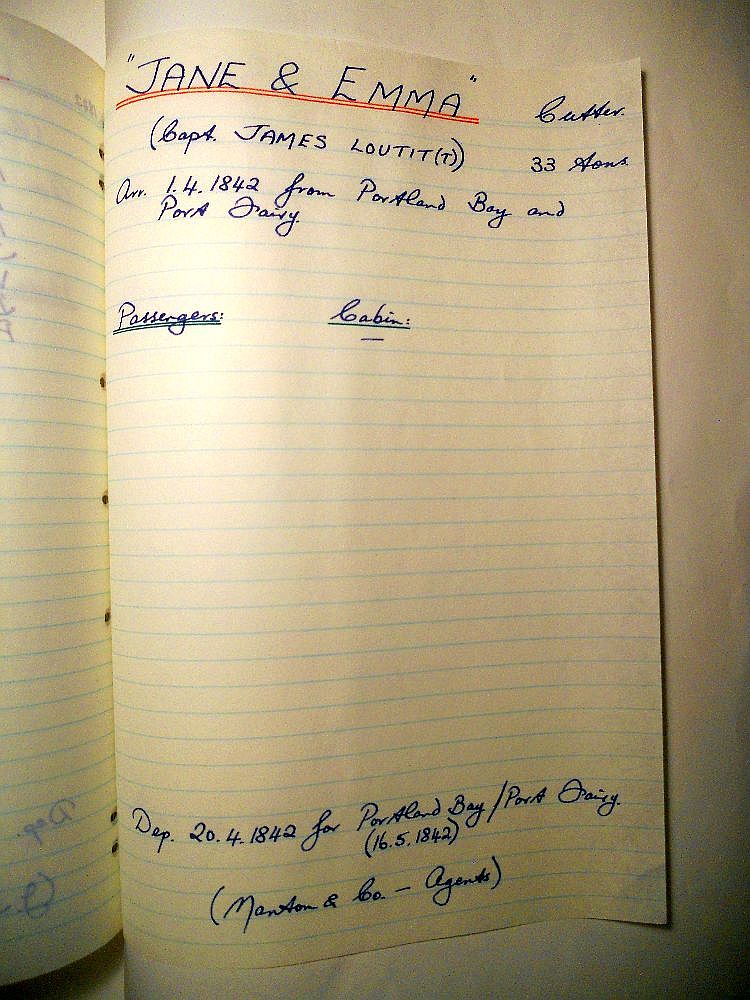 "JANE & EMMA"
Cutter.
(Capt. JAMES LOUTIT(T))
33 tons.
Arr. 1.4.1842 from Portland Bay and
Port Fairy.
Passengers:
Cabin:
—
Dep. 20.4.1842 for Portland Bay/Port Fairy.
(16.5.1842)
(Manton & Co. — Agents)